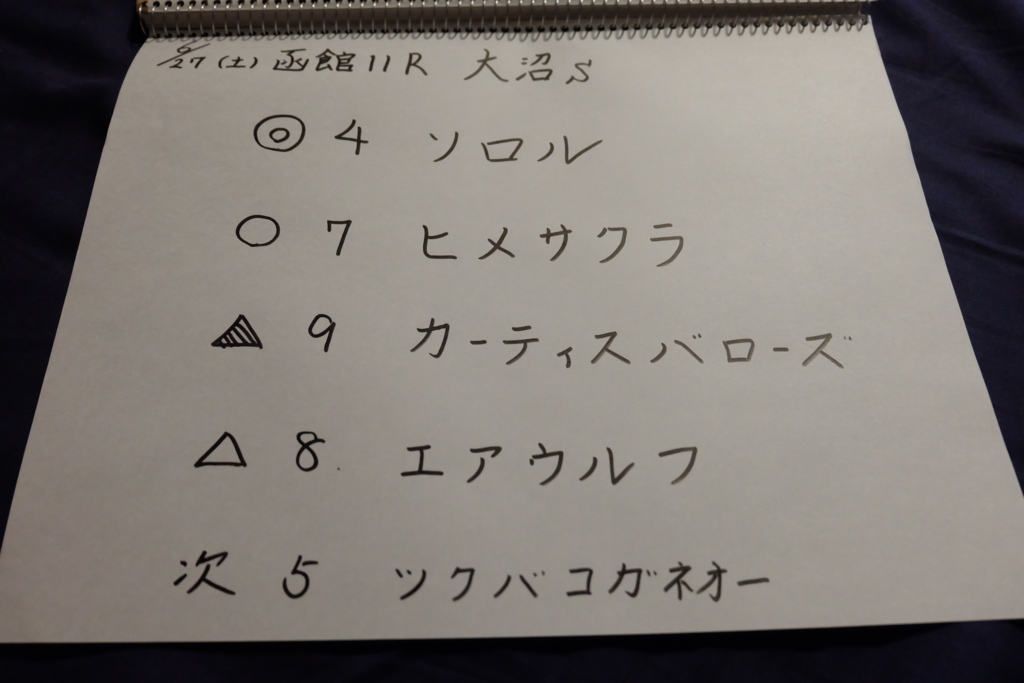 6/27(土) 函館11R 大沼S
◎ 4 ソロル
○ 7 ヒメサクラ
▲ 9 カーティスバローズ
△ 8 エアウルフ
次 5 ツクバコガネオー